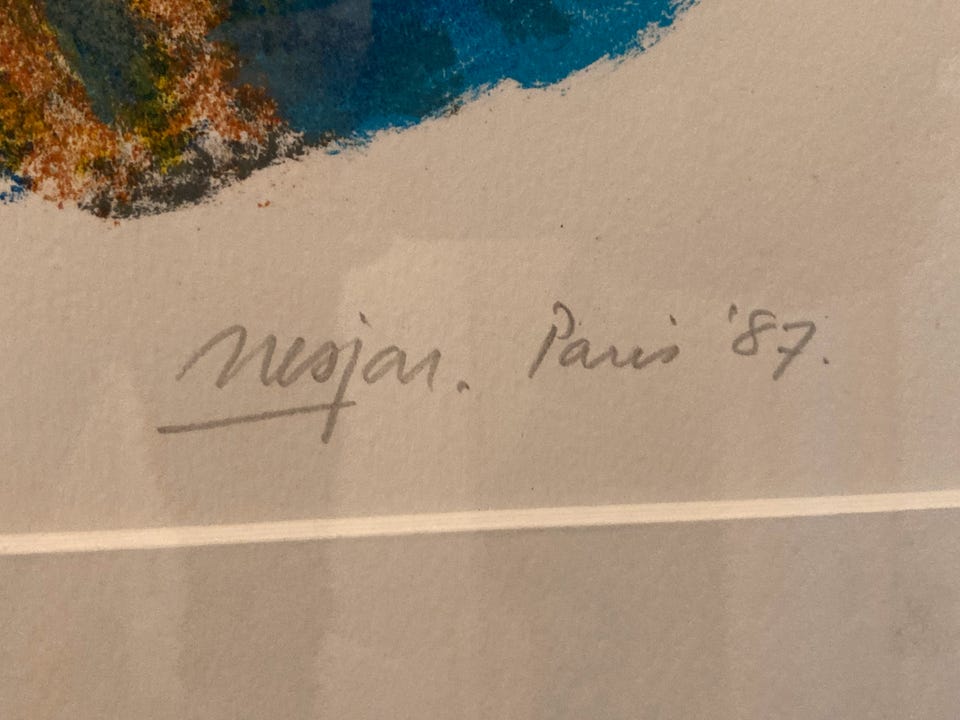 Nesjar. Paris '87.